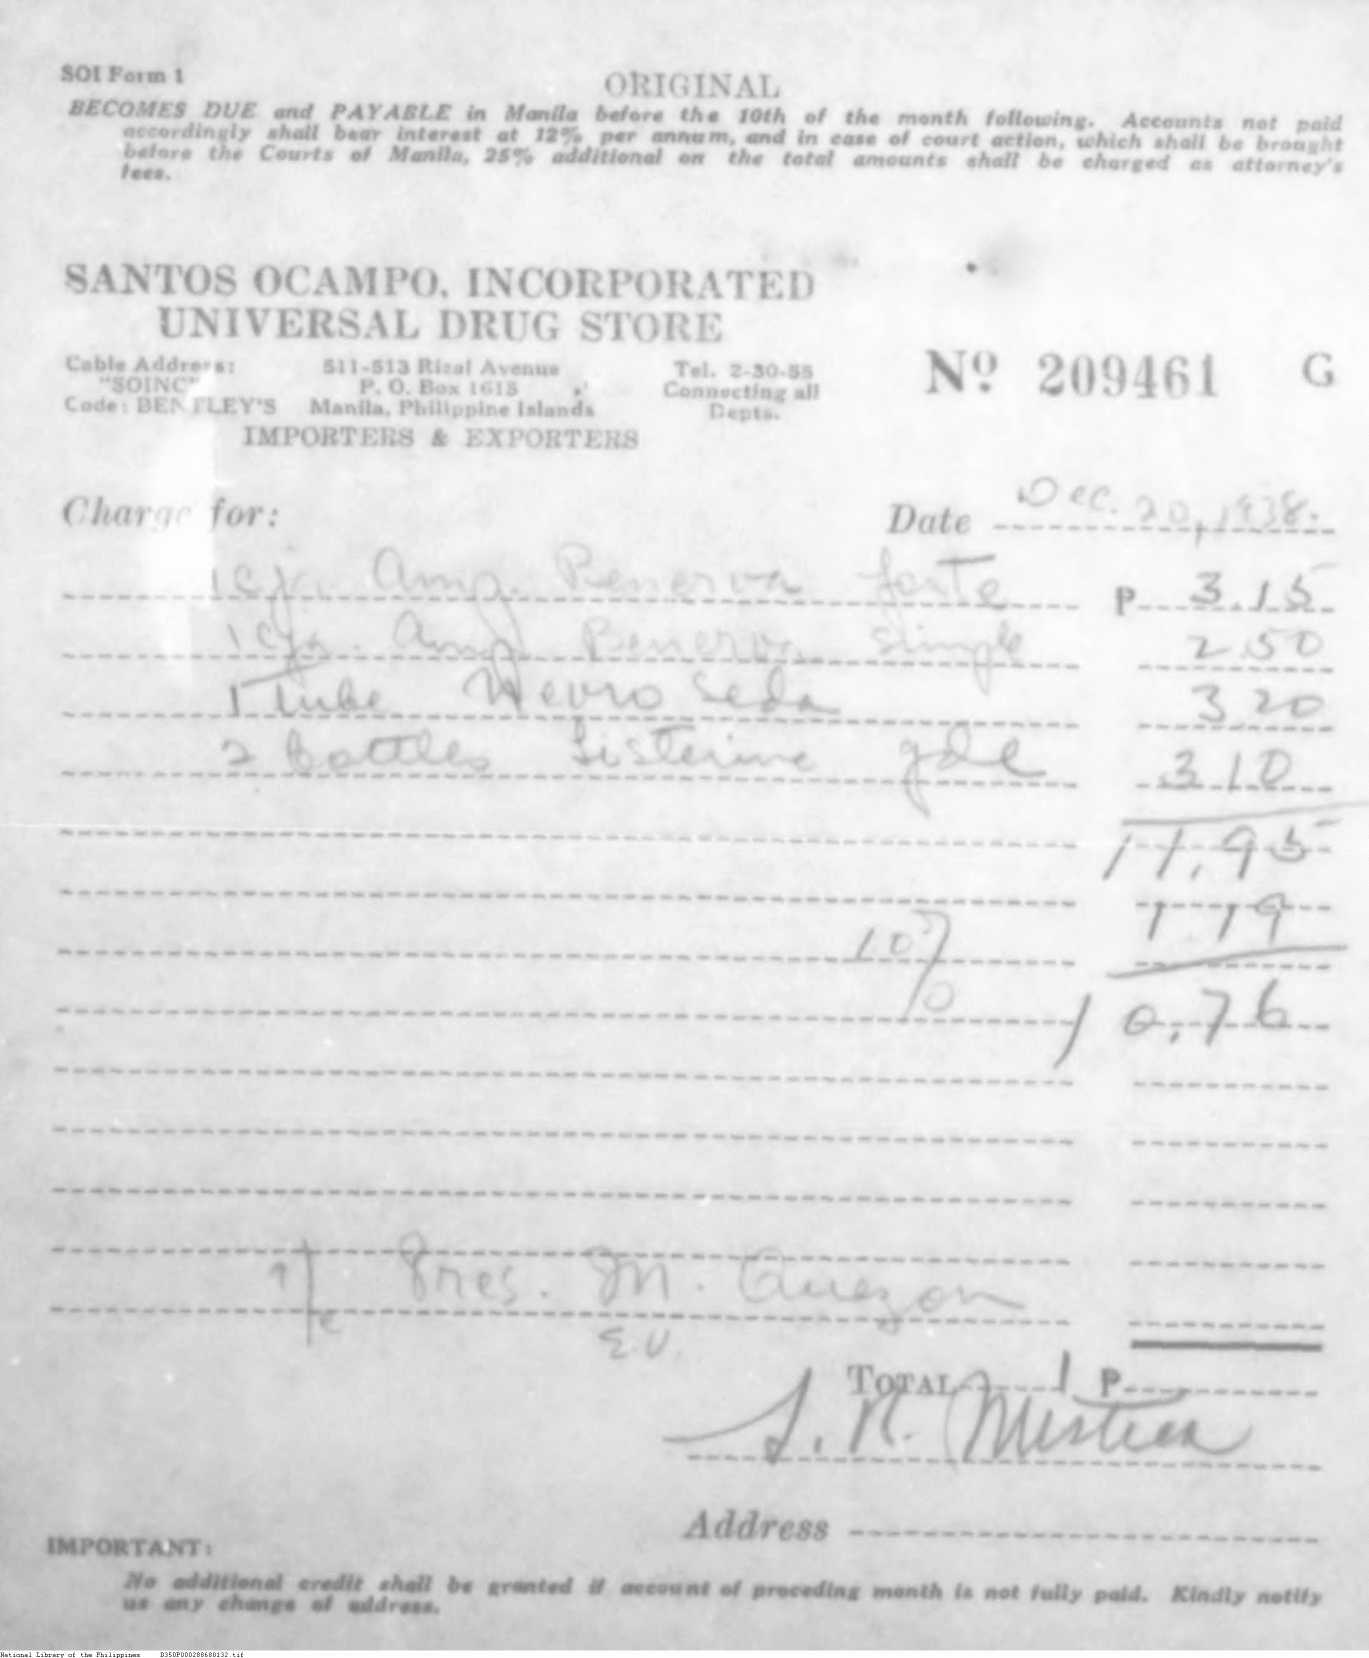 SOI Form 1
ORIGINAL
BECOMES DUE and PAYABLE in Manila before the 10th of the month following. Accounts not paid
accordingly shall bear interest at 12% per annum, and in case of court action, which shall be brought
before the Courts of Manila, 25% additional on the total amounts shall be charged as attorney's
fees.
SANTOS OCAMPO, INCORPORATED
UNIVERSAL DRUG STORE
Cable Address: 511-513 Rizal Avenue Tel. 2-30-55
"SOINC" P. O. Box 1615 Connecting all
Code: BENTLEY'S Manila, Philippine Islands Depts.
IMPORTERS & EXPORTERS
Nº 209461 G
Charge for: Date Dec. 20, 1938.
1 cja. Amp. Benerva forte P 3.15
1 cja. Amp Benerva simple 2.50
1 tube Nevro Seda 3 20
2 bottles Listerine gde 3 10
11.95
10% 1 19
10.76
Pres. M. Quezon
E.V.
TOTAL P
S. R.
Address
IMPORTANT:
No additional credit shall be granted if account of preceding month is not fully paid. Kindly notify
us any change of address.
National Library of the Philippines B350P000288680132.tif